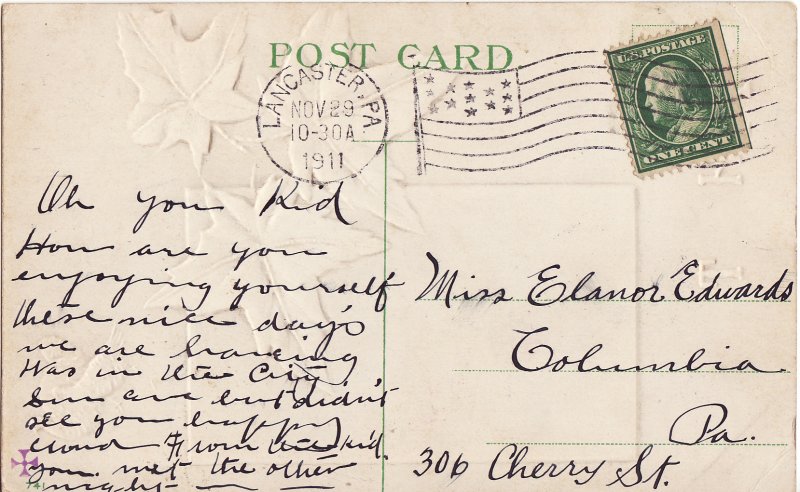 POST CARD.
LANCASTER, PA.
NOV 29
10-30A
1911
U.S. POSTAGE
ONE CENT
Oh you Kid
How are you
enjoying yourself
these nice day's
we are haveing
Was in the City
Sun are but didn't
see you happy
crowd From the kid.
you met the other
night
Miss Elanor Edwards
Columbia
Pa.
306 Cherry St.